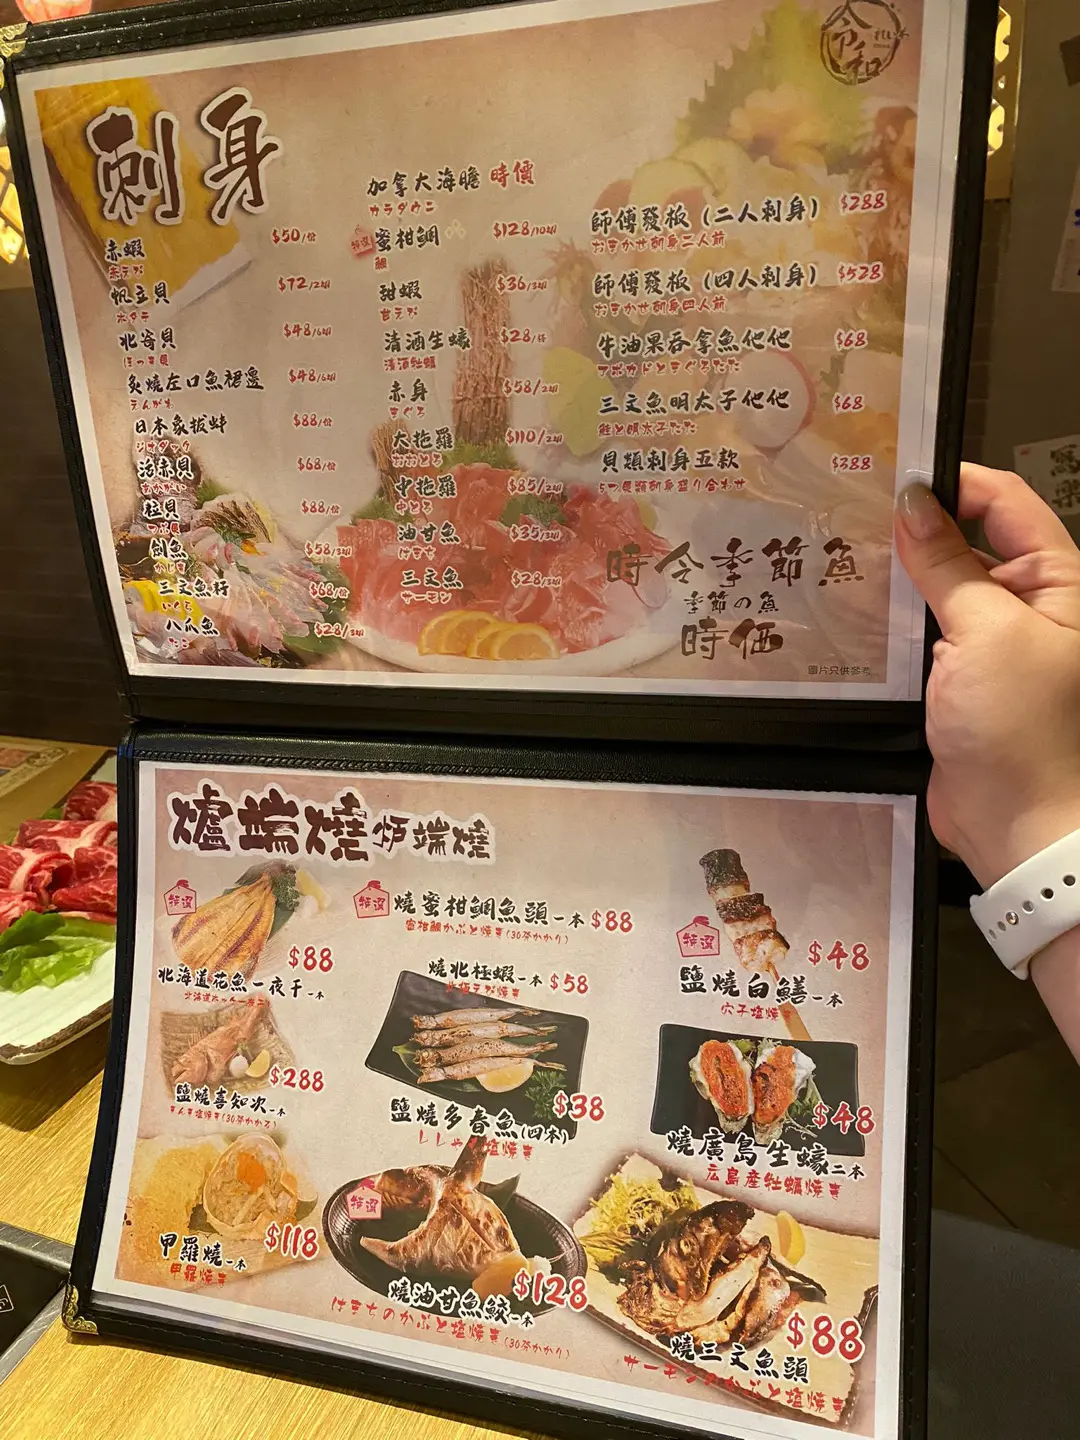 令和
刺身
赤蝦 $50/位
赤えび
帆立貝 $72/2切
ホタテ
北寄貝 $48/6切
ほっき貝
炙燒左口魚裙邊 $48/6切
えんがわ
日本象拔蚌 $88/位
活赤貝 $68/位
あかがい
粒貝 $88/位
つぶ貝
劍魚 $58/3切
かじき
三文魚籽 $68/位
いくら
八爪魚 $28/3切
たこ
加拿大海膽 時價
特選 蜜柑鯛 $128/10切
鯛
甜蝦 $36/3切
甘えび
清酒生蠔 $28/件
清酒牡蠣
赤身 $58/2切
まぐろ
大拖羅 $110/2切
おおとろ
中拖羅 $85/2切
中とろ
油甘魚 $35/3切
はまち
三文魚 $28/3切
サーモン
師傅發板 (二人刺身) $288
おまかせ刺身二人前
師傅發板 (四人刺身) $528
おまかせ刺身四人前
牛油果吞拿魚他他 $68
アボカドとまぐろたた
三文魚明太子他他 $68
鮭と明太子たた
貝類刺身五款 $388
5つ貝類刺身盛り合わせ
時令季節魚
季節の魚
時価
圖片只供參考
爐端燒 炉端燒
特選
$88
北海道花魚一夜干一本
$288
鹽燒喜知次一本
きんき塩焼き(30분かかる)
$118
甲羅燒一本
甲羅焼き
特選 燒蜜柑鯛魚頭一本 $88
蜜柑鯛かぶと焼き(30分かかり)
燒北極蝦一本 $58
北極えび焼き
鹽燒多春魚(四本) $38
ししゃも塩焼き
特選
燒油甘魚鮫一本 $128
はまちのかぶと塩焼き(30分かかり)
特選
$48
鹽燒白鱔一本
穴子塩焼き
$48
燒廣島生蠔二本
広島産牡蠣焼き
$88
燒三文魚頭
サーモンのかぶと塩焼き